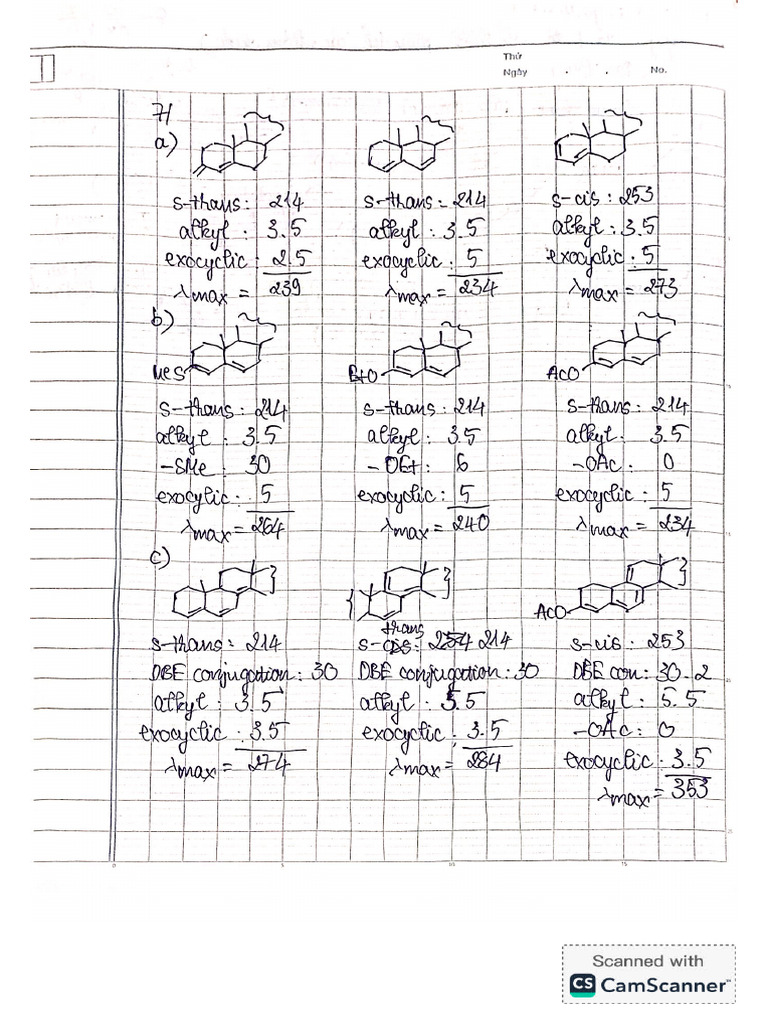 Thứ
Ngày . . No.
7/
a)
s-trans: 214 s-trans: 214 s-cis: 253
alkyl: 3.5 alkyl: 3.5 alkyl: 3.5
exocyclic: 2.5 exocyclic: 5 exocyclic: 5
λmax = 239 λmax = 234 λmax = 273
b)
MeS EtO AcO
s-trans: 214 s-trans: 214 s-trans: 214
alkyl: 3.5 alkyl: 3.5 alkyl: 3.5
-SMe: 30 -OEt: 6 -OAc: 0
exocylic: 5 exocyclic: 5 exocyclic: 5
λmax = 264 λmax = 240 λmax = 234
c)
AcO
trans
s-trans: 214 s-cis: 254 214 s-cis: 253
DBE conjugation: 30 DBE conjugation: 30 DBE con: 30.2
alkyl: 3.5 alkyl: 5.5 alkyl: 5.5
-OAc: 0
exocyclic: 3.5 exocyclic: 3.5 exocyclic: 3.5
λmax = 274 λmax = 284 λmax = 353
0 5 10 15
Scanned with
CS CamScanner